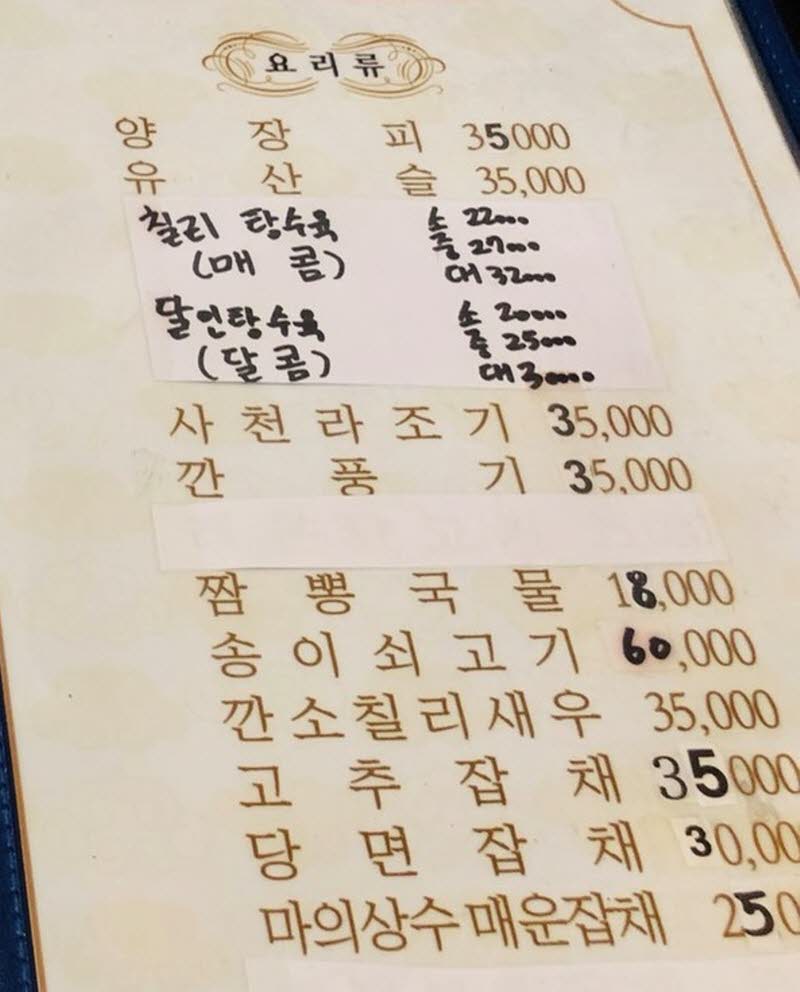 요리류
양장피 35000
유산슬 35,000
칠리 탕수육 소 22000
(매콤) 중 27000
대 32000
달인탕수육 소 20000
(달콤) 중 25000
대 30000
사천라조기 35,000
깐풍기 35,000
짬뽕국물 18,000
송이쇠고기 60,000
깐소칠리새우 35,000
고추잡채 35000
당면잡채 30,00
마의상수매운잡채 250